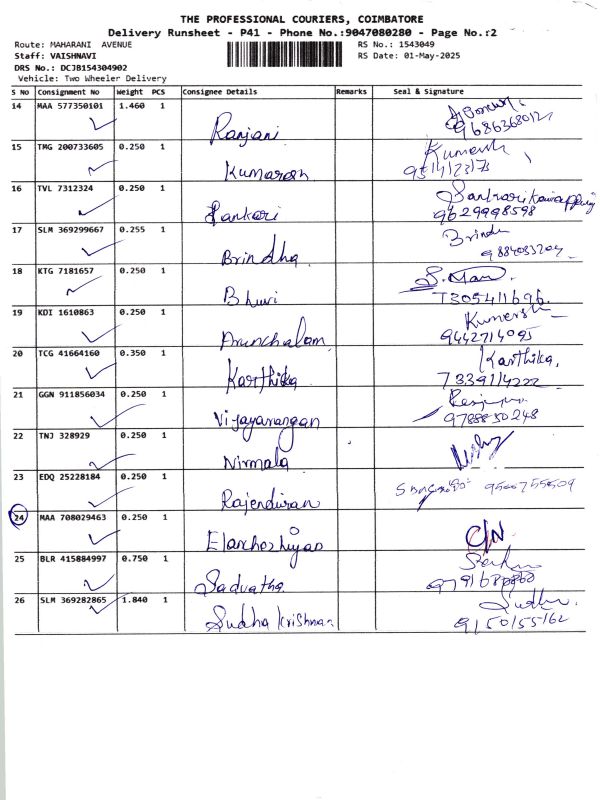 THE PROFESSIONAL COURIERS, COIMBATORE
Delivery Runsheet - P41 - Phone No.:9047080280 - Page No.:2
Route: MAHARANI AVENUE RS No.: 1543049
Staff: VAISHNAVI RS Date: 01-May-2025
DRS No.: DCJB154304902
Vehicle: Two Wheeler Delivery
S No Consignment No Weight PCS Consignee Details Remarks Seal & Signature
14 MAA 577350101 1.460 1 Ranjani
9686368012
15 TMG 200733605 0.250 1 Kumaran Kumaresh
16 TVL 7312324 0.250 1 Sankari
9629998598
17 SLM 369299667 0.255 1 Brindha Brindu
18 KTG 7181657 0.250 1 Bhuvi
7305411696
19 KDI 1610863 0.250 1 Arunchalam Kumaresh
9442714095
20 TCG 41664160 0.350 1 Karthika Karthika,
7339114222
21 GGN 911856034 0.250 1 Vijayanangan
9788850248
22 TNJ 328929 0.250 1 Nirmala
23 EDQ 25228184 0.250 1 Rajendiran 9500755509
24 MAA 708029463 0.250 1 Elanchezhiyan C/N
25 BLR 415884997 0.750 1 Sadvatha
26 SLM 369282865 1.840 1 Sudha Krishnan Sudha
9150155162